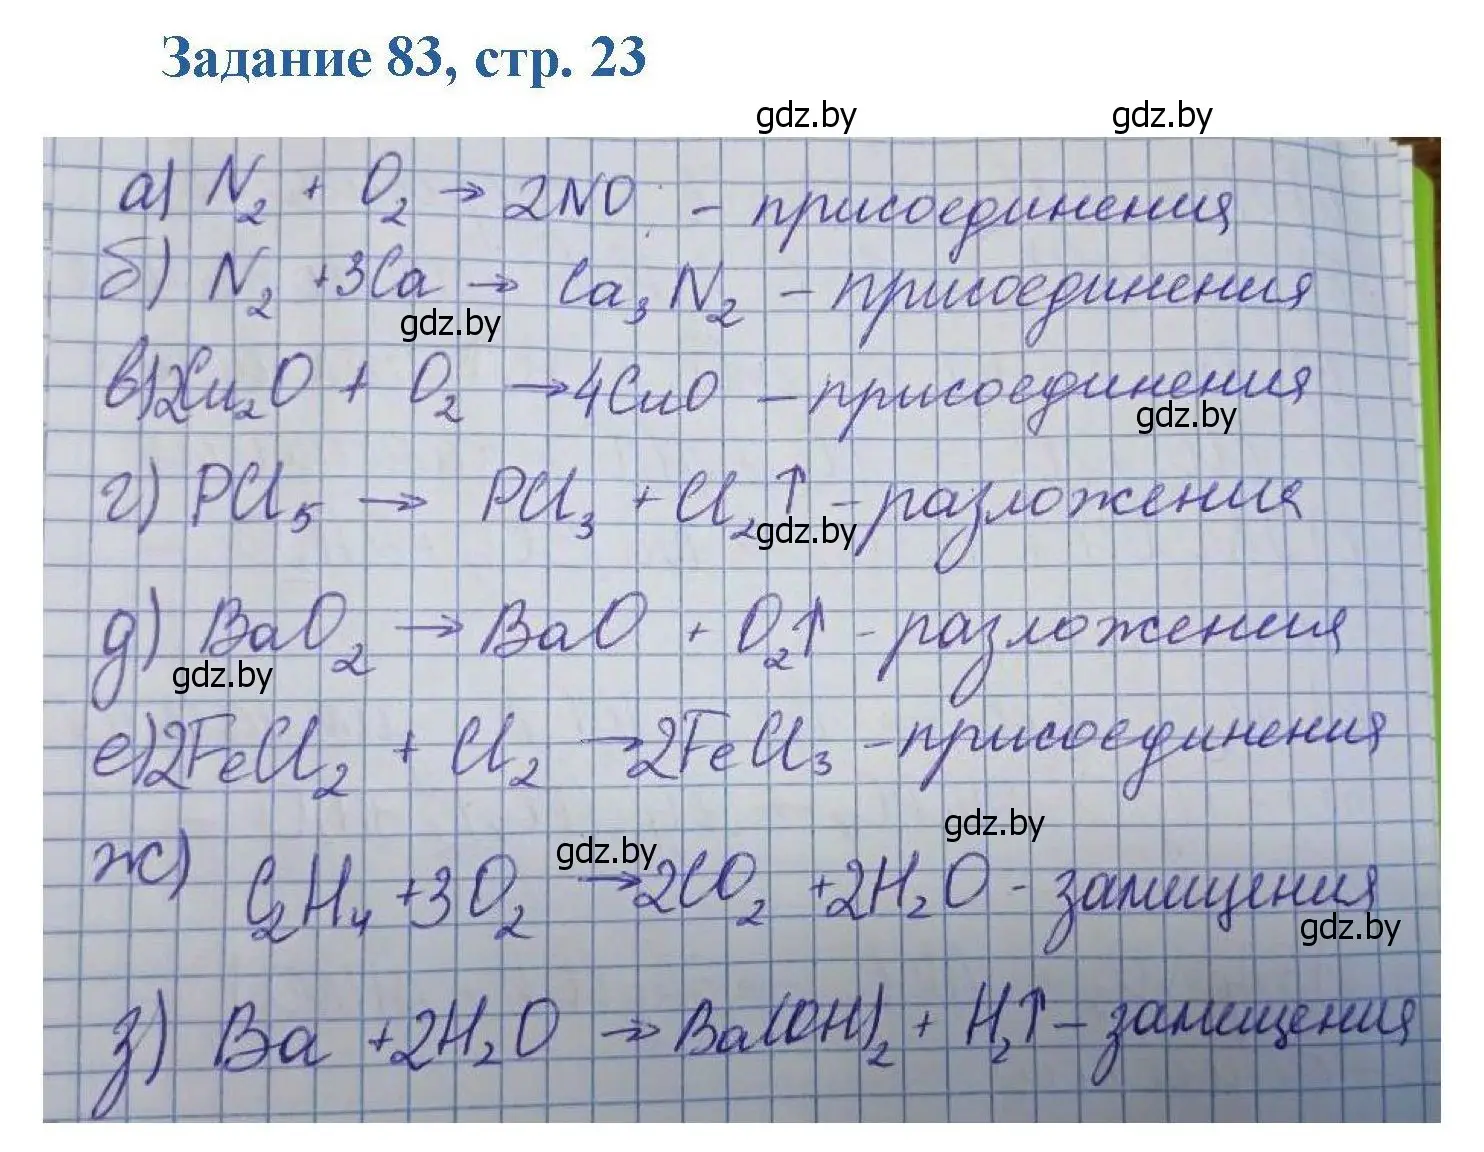 Задание 83, стр. 23
gdz.by gdz.by
а) N₂ + O₂ → 2NO - присоединения
б) N₂ + 3Ca → Ca₃N₂ - присоединения
gdz.by
в) 2Cu₂O + O₂ → 4CuO - присоединения
gdz.by
г) PCl₅ → PCl₃ + Cl₂↑ - разложения
gdz.by
д) BaO₂ → BaO + O₂↑ - разложения
gdz.by
е) 2FeCl₂ + Cl₂ → 2FeCl₃ - присоединения
gdz.by
gdz.by
ж) C₂H₄ + 3O₂ → 2CO₂ + 2H₂O - замещения
gdz.by
з) Ba + 2H₂O → Ba(OH)₂ + H₂↑ - замещения